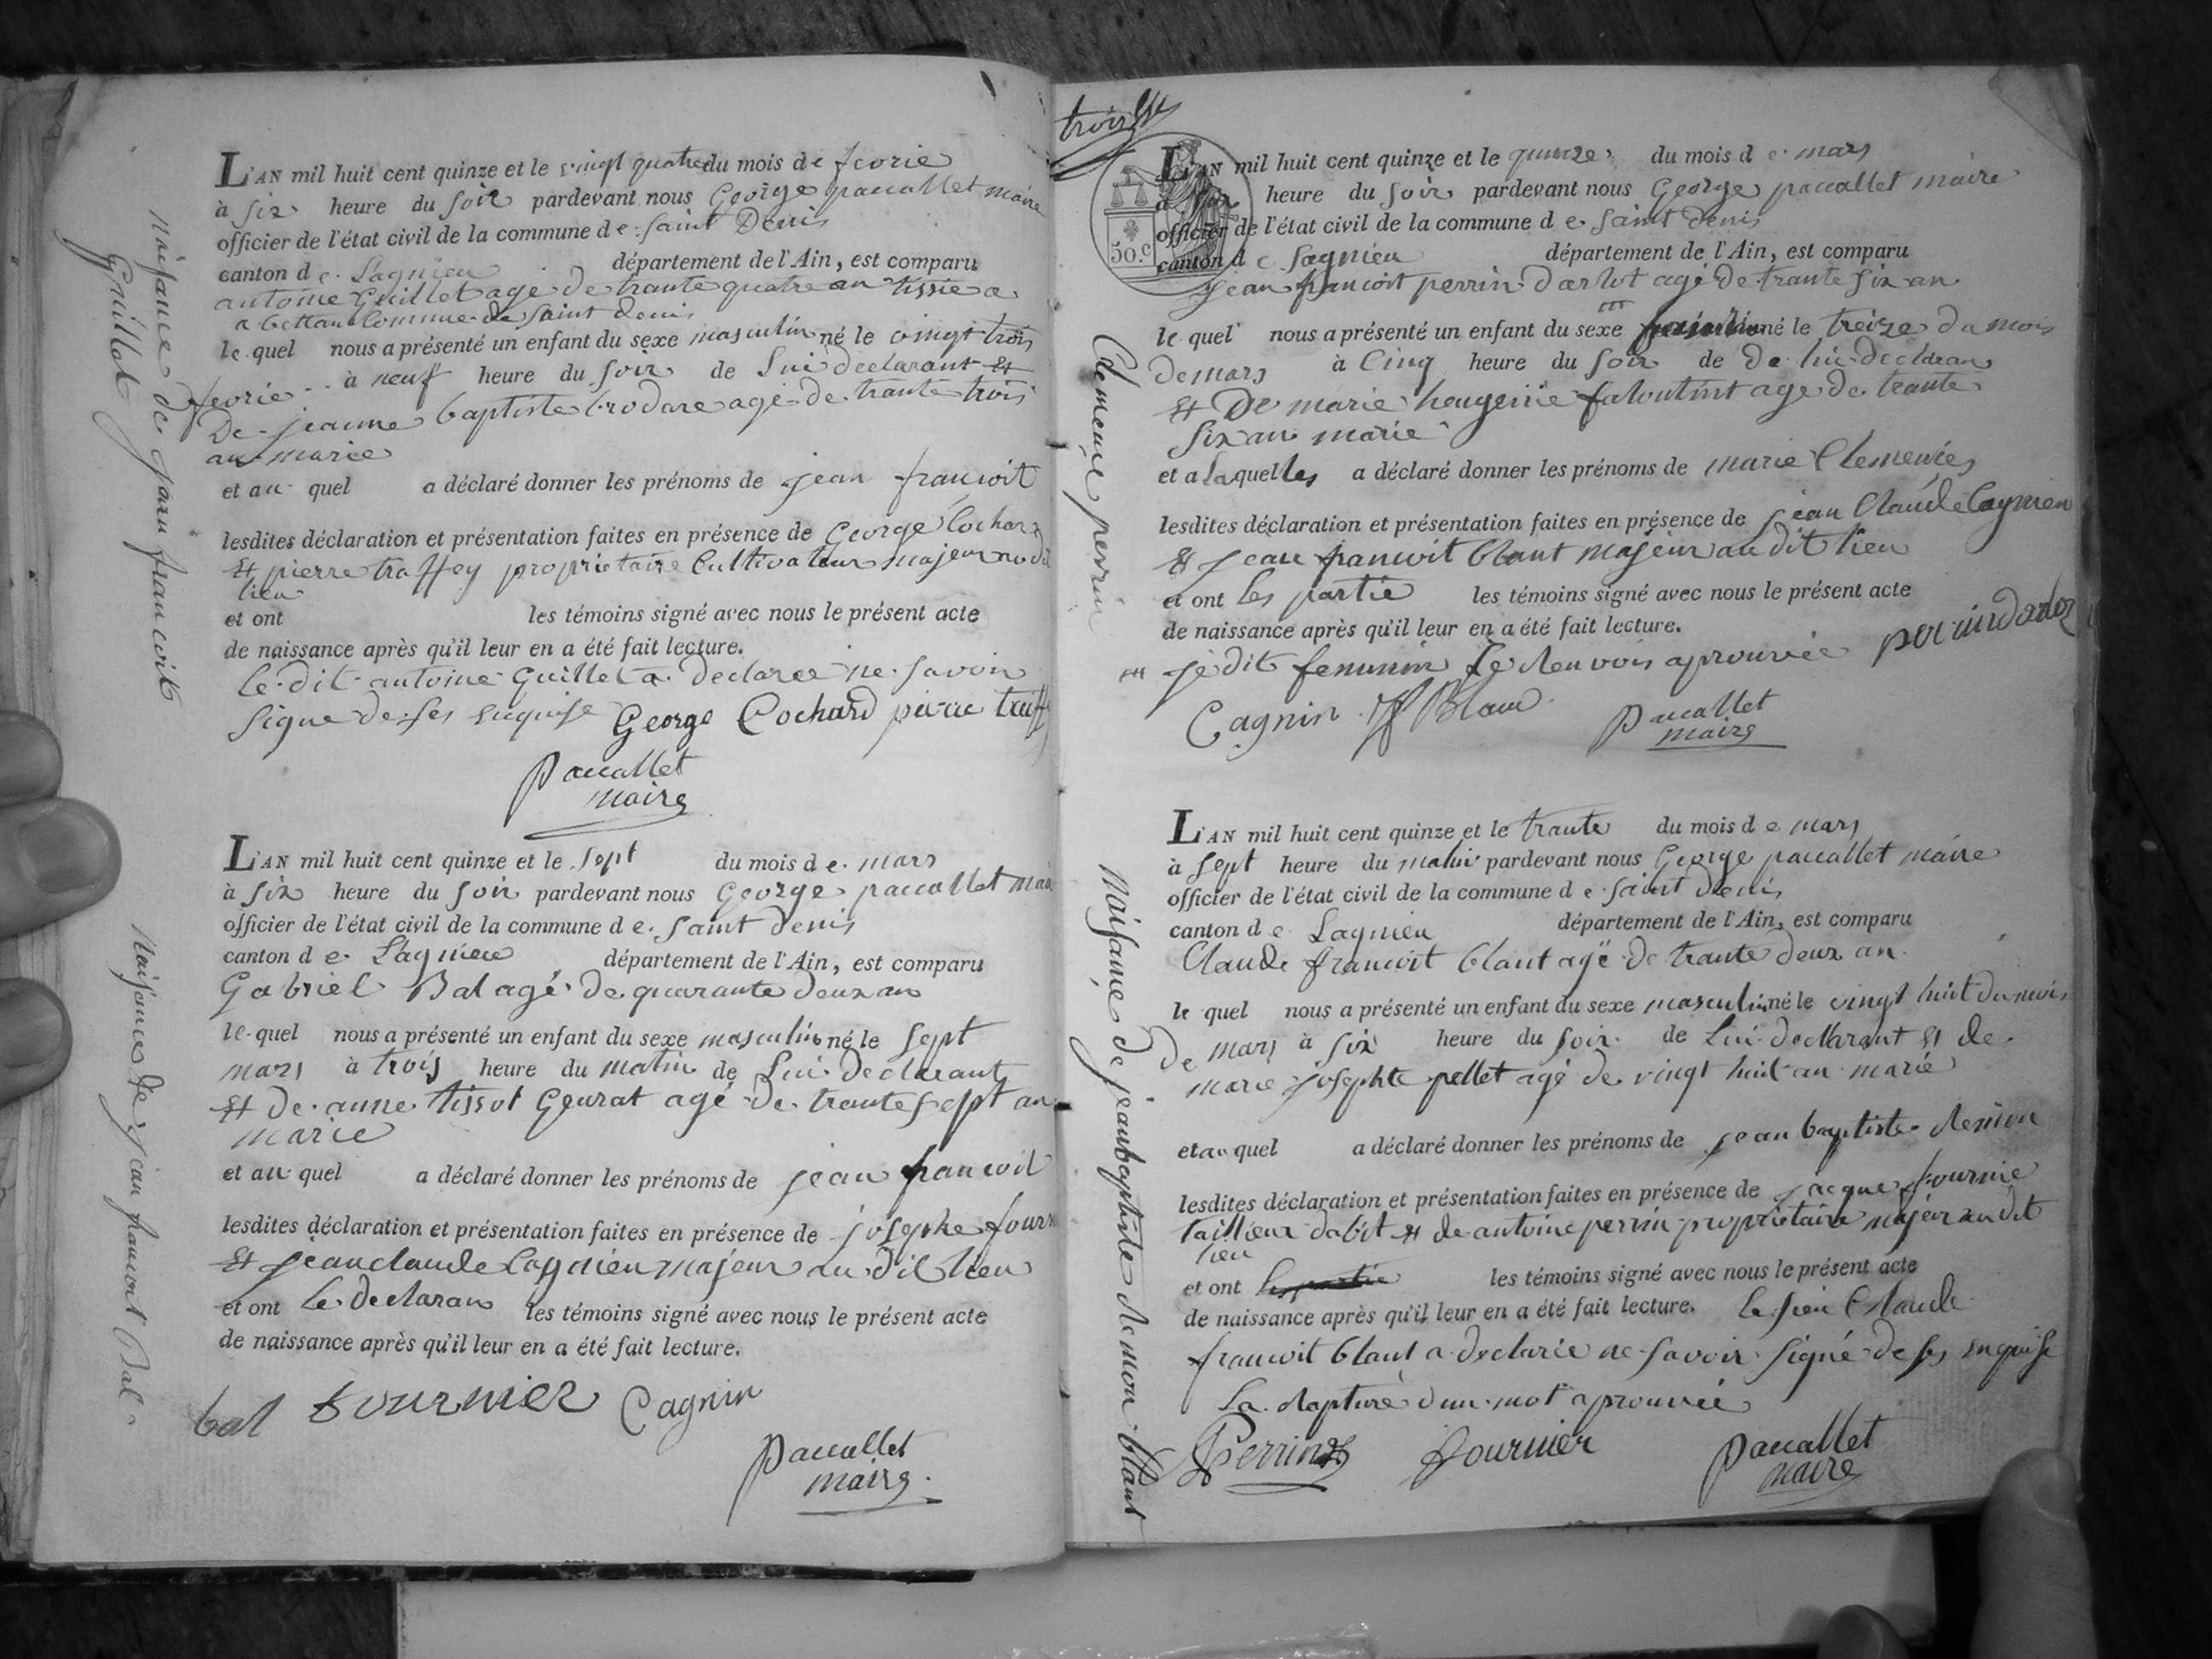 Naisance de jean francoit
Guillet
L'AN mil huit cent quinze et le vingt quatre du mois de fevrie
à six heure du soir pardevant nous George paccallet maire
officier de l'état civil de la commune de saint Denis
canton de Lagnieu département de l'Ain, est comparu
antoine Guillet agé de trante quatre an tissie a
a bettan Commune de saint denis
le quel nous a présenté un enfant du sexe masculin né le vingt trois
fevrie à neuf heure du soir de Lui declarant et
De jeanne baptiste brodare agé de trante trois
an marie
et au quel a déclaré donner les prénoms de jean francoit
lesdites déclaration et présentation faites en présence de George Cochard
Et pierre traffey proprietaire Cultivateur majeur
lieu
et ont les témoins signé avec nous le présent acte
de naissance après qu'il leur en a été fait lecture.
le dit antoine Guillet a declaree ne savoir
signe de ses enquise George Cochard pierre traff
Paccallet
maire
Naisance de jean francoit Bal
L'AN mil huit cent quinze et le sept du mois de mars
à six heure du soir pardevant nous George paccallet mai
officier de l'état civil de la commune de saint denis
canton de Lagnieu département de l'Ain, est comparu
Gabriel Bal agé de quarante deux an
le quel nous a présenté un enfant du sexe masculin né le sept
mars à trois heure du matin de Lui declarant
Et de anne tissot Geurat agé de trante sept an
marie
et au quel a déclaré donner les prénoms de jean francoit
lesdites déclaration et présentation faites en présence de josephe fourn
Et jean claude Cagnien majeur au dit lieu
et ont le declaran les témoins signé avec nous le présent acte
de naissance après qu'il leur en a été fait lecture.
bal fournier Cagnin
Paccallet
maire
trois
50.c
Clemence perrin
L'AN mil huit cent quinze et le quinze du mois de mars
à six heure du soir pardevant nous George paccallet maire
officier de l'état civil de la commune de saint denis
canton de Lagnieu département de l'Ain, est comparu
jean francoit perrin darlot agé de trante six an
le quel nous a présenté un enfant du sexe né le treize du mois
de mars à Cinq heure du soir de de lui declaran
Et De marie heugenie agé de trante
six an marie
et a laquelles a déclaré donner les prénoms de marie Clemences
lesdites déclaration et présentation faites en présence de jean Claude Cagnien
Et jean francoit blant majeur au dit lieu
et ont les partie les témoins signé avec nous le présent acte
de naissance après qu'il leur en a été fait lecture.
je dit femenin Le renvois aprouvée perrindarlot
Cagnin jf Blanc
Paccallet
maire
Naisance de jeanbaptiste Remon blant
L'AN mil huit cent quinze et le trante du mois de mars
à sept heure du matin pardevant nous George paccallet maire
officier de l'état civil de la commune de saint denis
canton de Lagnieu département de l'Ain, est comparu
Claude francoit blant agé de trante deux an
le quel nous a présenté un enfant du sexe masculin né le vingt huit du mois
De mars à six heure du soir de Lui declarant et de
marie josephte pellet agé de vingt huit an marié
et au quel a déclaré donner les prénoms de jean baptiste Remon
lesdites déclaration et présentation faites en présence de jacque fournie
taillieur dabit et de antoine perrin proprietaire majeur au dit
lieu
et ont les partie les témoins signé avec nous le présent acte
de naissance après qu'il leur en a été fait lecture. le sieu Claude
francoit blant a declarée ne savoir signé de ses enquise
La rapture dun mot aprouvée
Perrin fournier
Paccallet
maire